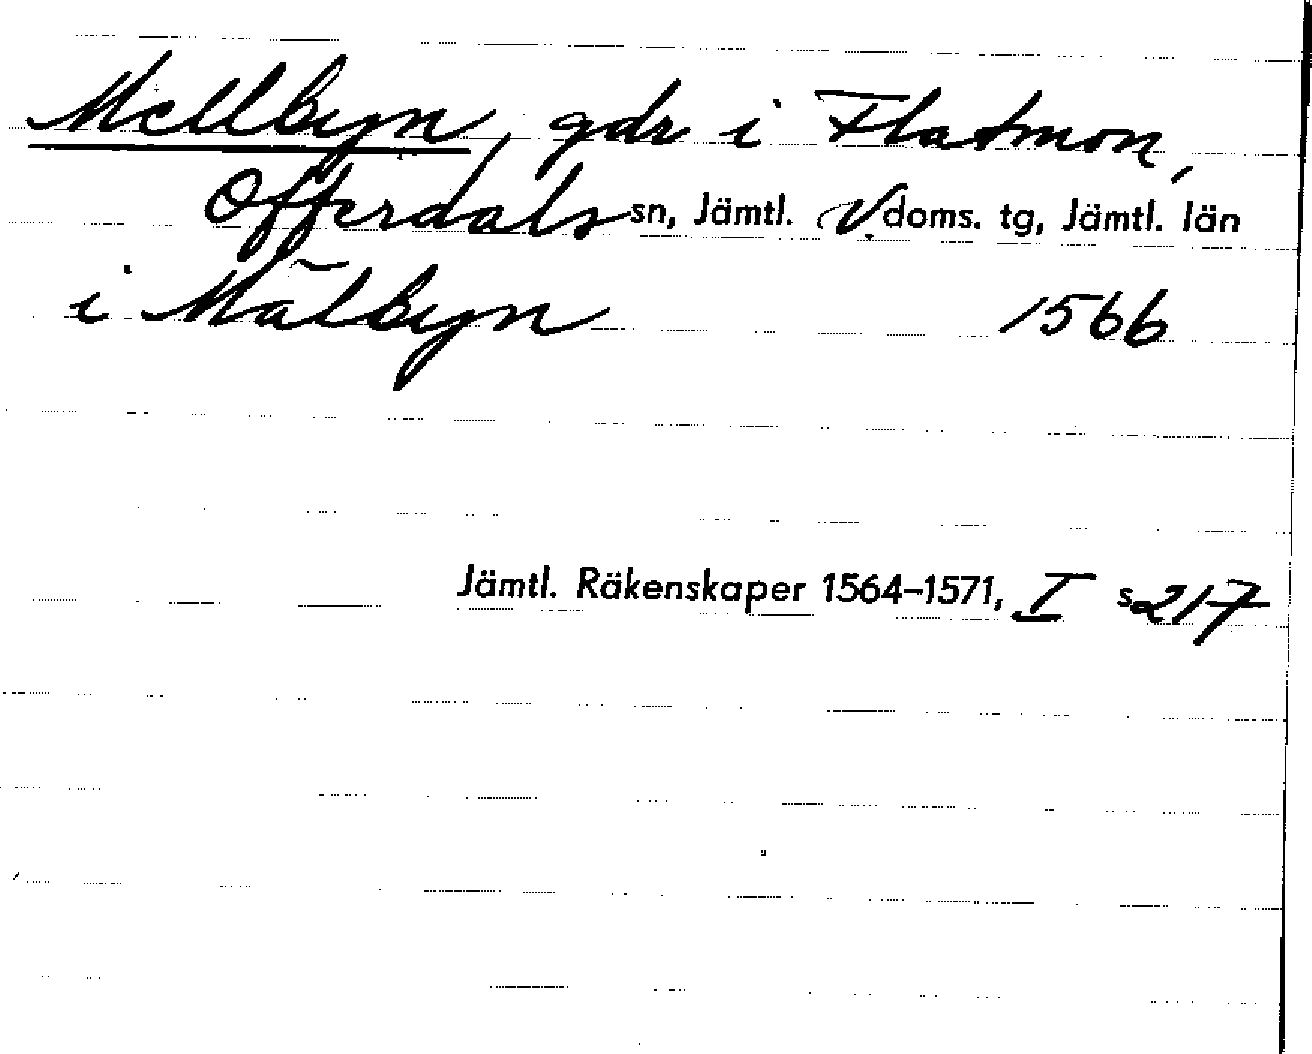 Mellbyn, gdr i Flatmon,
Offerdals sn, Jämtl. V. doms. tg, Jämtl. län
i Mälbyn 1566
Jämtl. Räkenskaper 1564–1571, I s 217